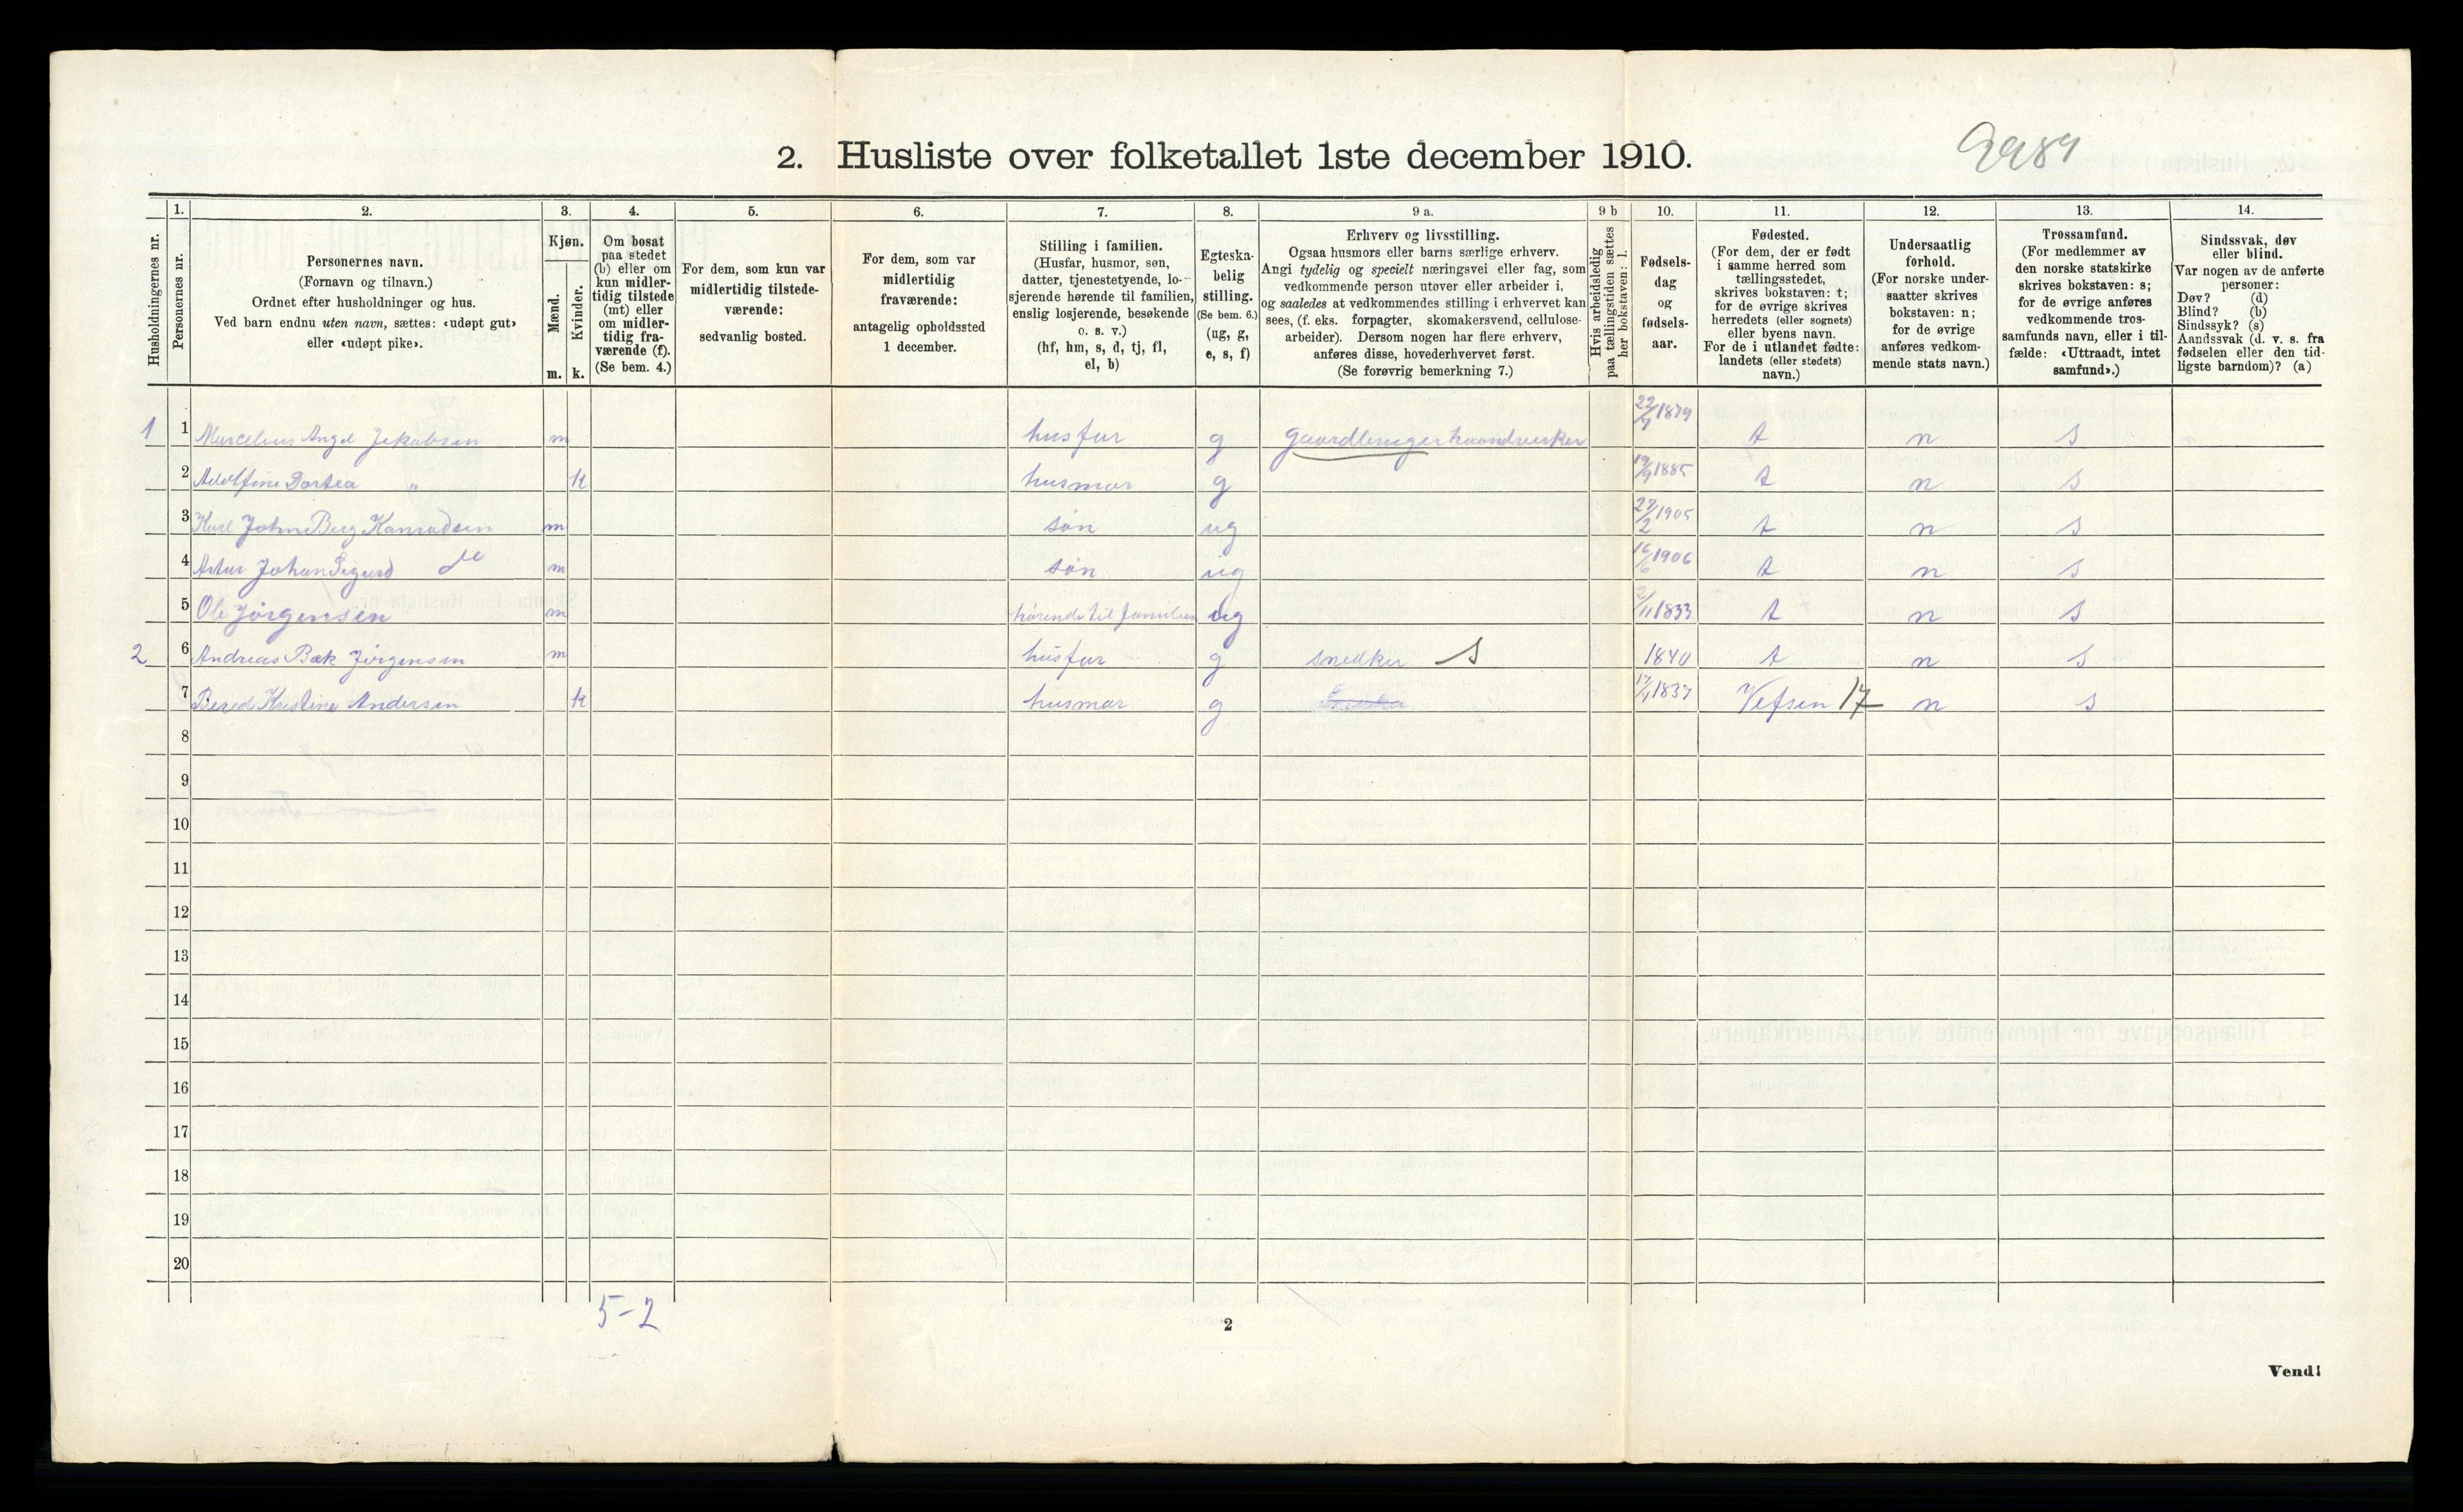 2. Husliste over folketallet 1ste december 1910.
1. 2. 3. 4. 5. 6. 7. 8. 9 a. 9 b 10. 11. 12. 13. 14.
Husholdningernes nr.
Personernes nr.
Personernes navn.
(Fornavn og tilnavn.)
Ordnet efter husholdninger og hus.
Ved barn endnu uten navn, sættes: «udøpt gut»
eller «udøpt pike».
Kjøn.
Mænd.
Kvinder.
m. k.
Om bosat
paa stedet
(b) eller om
kun midler-
tidig tilstede
(mt) eller
om midler-
tidig fra-
værende (f).
(Se bem. 4.)
For dem, som kun var
midlertidig tilstede-
værende:
sedvanlig bosted.
For dem, som var
midlertidig
fraværende:
antagelig opholdssted
1 december.
Stilling i familien.
(Husfar, husmor, søn,
datter, tjenestetyende, lo-
sjerende hørende til familien,
enslig losjerende, besøkende
o. s. v.)
(hf, hm, s, d, tj, fl,
el, b)
Egteska-
belig
stilling.
(Se bem. 6.)
(ug, g,
e, s, f)
Erhverv og livsstilling.
Ogsaa husmors eller barns særlige erhverv.
Angi tydelig og specielt næringsvei eller fag, som
vedkommende person utøver eller arbeider i,
og saaledes at vedkommendes stilling i erhvervet kan
sees, (f. eks. forpagter, skomakersvend, cellulose-
arbeider). Dersom nogen har flere erhverv,
anføres disse, hovederhvervet først.
(Se forøvrig bemerkning 7.)
Hvis arbeidsledig
paa tællingstiden sættes
her bokstaven: l.
Fødsels-
dag
og
fødsels-
aar.
Fødested.
(For dem, der er født
i samme herred som
tællingsstedet,
skrives bokstaven: t;
for de øvrige skrives
herredets (eller sognets)
eller byens navn.
For de i utlandet fødte:
landets (eller stedets)
navn.)
Undersaatlig
forhold.
(For norske under-
saatter skrives
bokstaven: n;
for de øvrige
anføres vedkom-
mende stats navn.)
Trossamfund.
(For medlemmer av
den norske statskirke
skrives bokstaven: s;
for de øvrige anføres
vedkommende tros-
samfunds navn, eller i til-
fælde: «Uttraadt, intet
samfund».)
Sindssvak, døv
eller blind.
Var nogen av de anførte
personer:
Døv? (d)
Blind? (b)
Sindssyk? (s)
Aandssvak (d. v. s. fra
fødselen eller den tid-
ligste barndom)? (a)
1 1 Marcelius Angel Jekobsen m husfar g gaardbruger haandverker 1879 t n s
2 Adolfine Dortea " k husmor g 19/9 1885 t n s
3 Karl John Berg Konradsen m søn ug 27/2 1905 t n s
4 Artur Johan Sigurd do m søn ug 16/6 1906 t n s
5 Ole Jörgensen m hörende til familien ug 2/11 1833 t n s
2 6 Andreas Bæk Jörgensen m husfar g snedker S 1840 t n s
7 Kristine Andersen k husmor g 1837 Vefsen 17 n s
8
9
10
11
12
13
14
15
16
17
18
19
20
5-2
2
Vend!